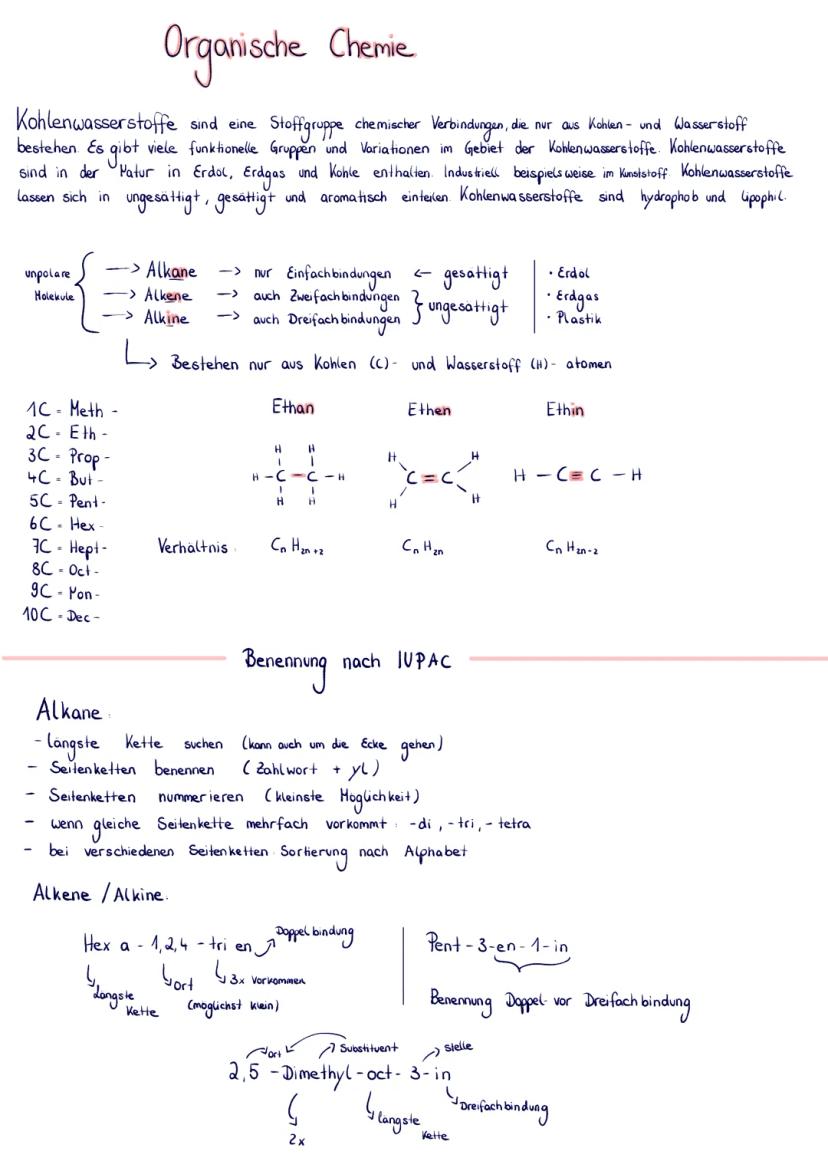 Organische Chemie
Kohlenwasserstoffe sind eine Stoffgruppe chemischer Verbindungen, die nur aus Kohlen- und Wasserstoff
bestehen. Es gibt viele funktionelle Gruppen und Variationen im Gebiet der Kohlenwasserstoffe. Kohlenwasserstoffe
sind in der Natur in Erdöl, Erdgas und Kohle enthalten. Industriell beispielsweise im Kunststoff. Kohlenwasserstoffe
lassen sich in ungesättigt, gesättigt und aromatisch einteilen. Kohlenwasserstoffe sind hydrophob und lipophil.
unpolare Moleküle
→ Alkane → nur Einfachbindungen ← gesättigt
→ Alkene → auch Zweifachbindungen
→ Alkine → auch Dreifachbindungen } ungesättigt
• Erdöl
• Erdgas
• Plastik
↳ Bestehen nur aus Kohlen (C)- und Wasserstoff (H)- atomen
1C = Meth -
2C = Eth -
3C = Prop -
4C = But -
5C = Pent -
6C = Hex -
7C = Hept -
8C = Oct -
9C = Non -
10C = Dec -
Ethan Ethen Ethin
H H
H - C - C - H
H H
H H
C = C
H H
H - C ≡ C - H
Verhältnis: CₙH₂ₙ₊₂ CₙH₂ₙ CₙH₂ₙ₋₂
Benennung nach IUPAC
Alkane:
- längste Kette suchen (kann auch um die Ecke gehen)
- Seitenketten benennen (Zahlwort + yl)
- Seitenketten nummerieren (kleinste Möglichkeit)
- wenn gleiche Seitenkette mehrfach vorkommt: -di, -tri, -tetra
- bei verschiedenen Seitenketten Sortierung nach Alphabet
Alkene / Alkine:
Hex a - 1,2,4 - tri en
Doppelbindung
längste Kette
Ort (möglichst klein)
3x Vorkommen
Pent - 3 - en - 1 - in
Benennung Doppel- vor Dreifachbindung
Ort Substituent Stelle
2,5 - Dimethyl - oct - 3 - in
2x
längste Kette
Dreifachbindung